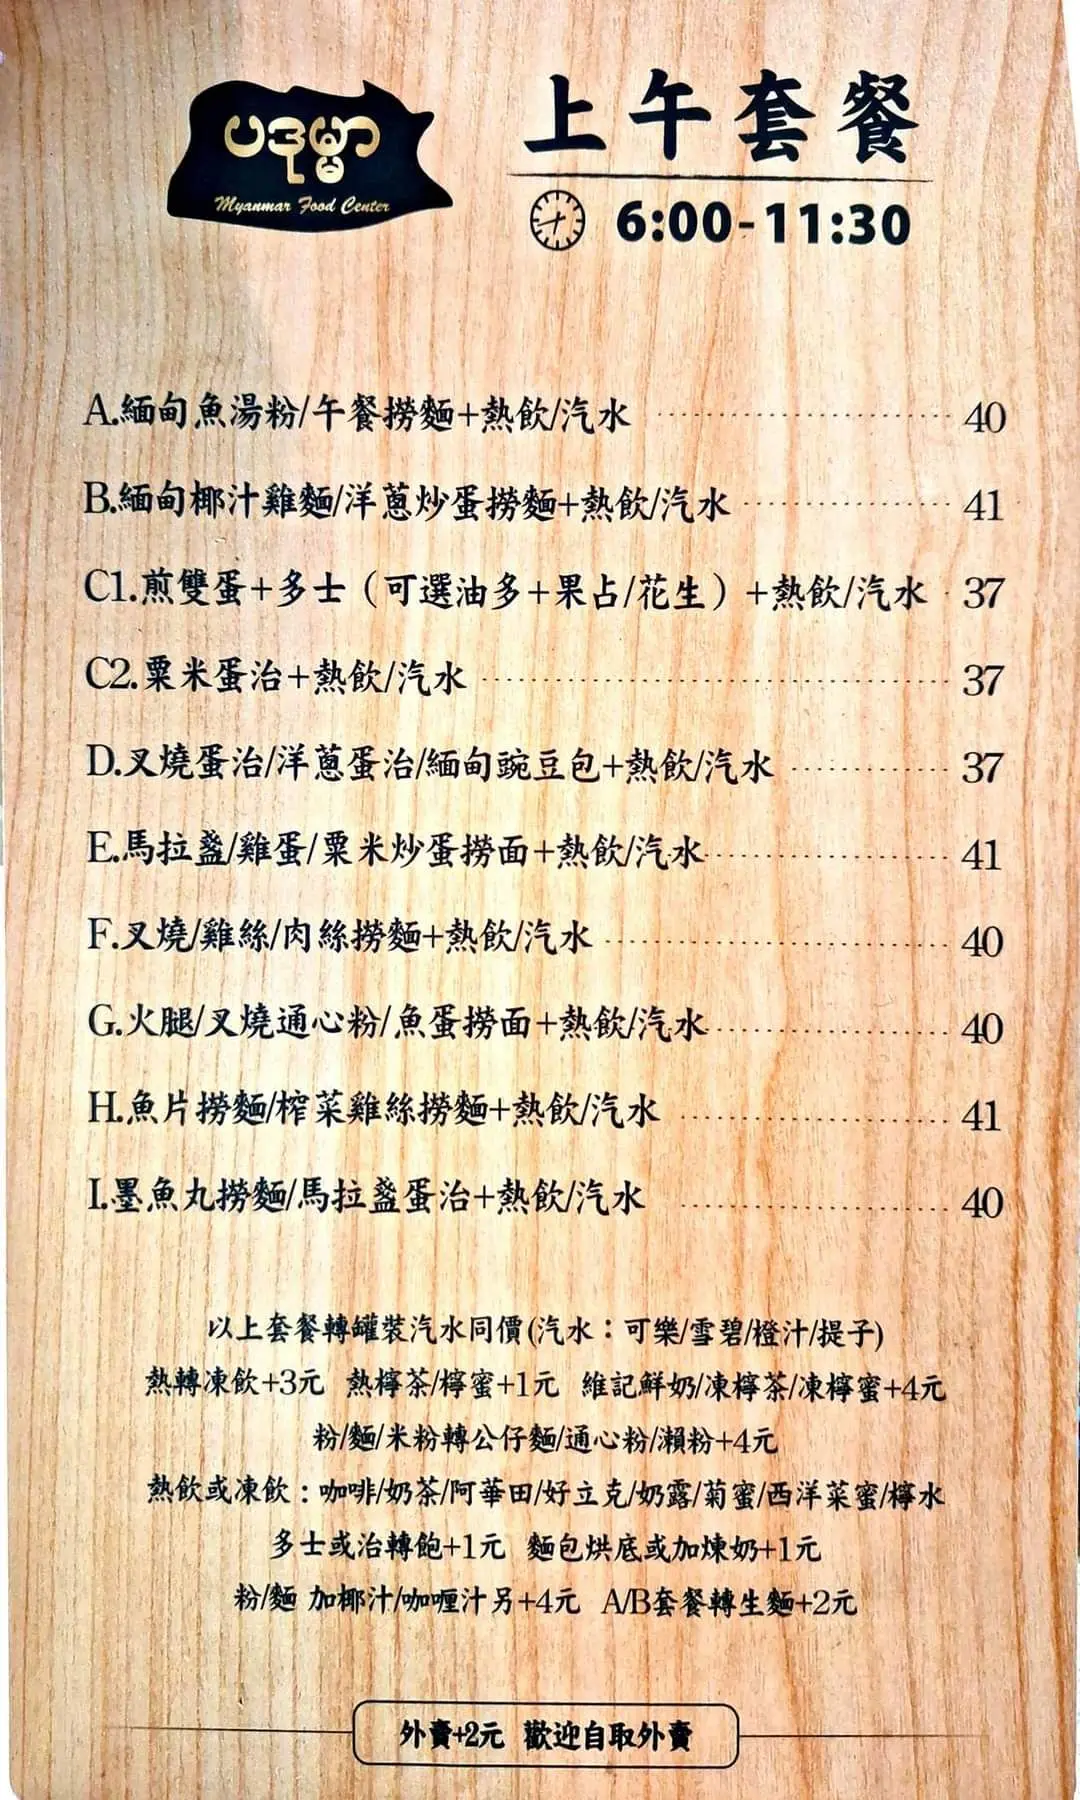 ပဒုမ္မာ
Myanmar Food Center
上午套餐
6:00-11:30
A.緬甸魚湯粉/午餐撈麵+熱飲/汽水 40
B.緬甸椰汁雞麵/洋蔥炒蛋撈麵+熱飲/汽水 41
C1.煎雙蛋+多士（可選油多+果占/花生）+熱飲/汽水 37
C2.粟米蛋治+熱飲/汽水 37
D.叉燒蛋治/洋蔥蛋治/緬甸豌豆包+熱飲/汽水 37
E.馬拉盞/雞蛋/粟米炒蛋撈面+熱飲/汽水 41
F.叉燒/雞絲/肉絲撈麵+熱飲/汽水 40
G.火腿/叉燒通心粉/魚蛋撈面+熱飲/汽水 40
H.魚片撈麵/榨菜雞絲撈麵+熱飲/汽水 41
I.墨魚丸撈麵/馬拉盞蛋治+熱飲/汽水 40
以上套餐轉罐裝汽水同價(汽水：可樂/雪碧/橙汁/提子)
熱轉凍飲+3元 熱檸茶/檸蜜+1元 維記鮮奶/凍檸茶/凍檸蜜+4元
粉/麵/米粉轉公仔麵/通心粉/瀨粉+4元
熱飲或凍飲：咖啡/奶茶/阿華田/好立克/奶露/菊蜜/西洋菜蜜/檸水
多士或治轉飽+1元 麵包烘底或加煉奶+1元
粉/麵 加椰汁/咖喱汁另+4元 A/B套餐轉生麵+2元
外賣+2元 歡迎自取外賣